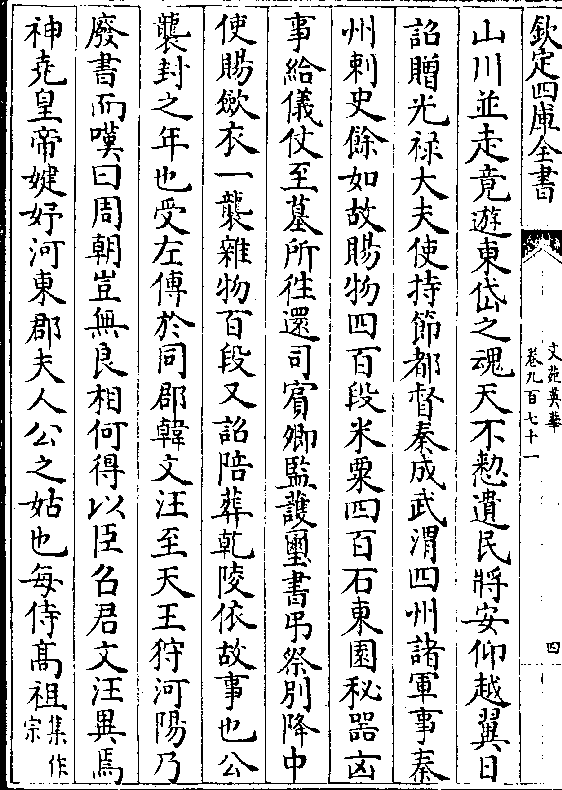 欽定四庫全書
文苑英華
卷九百七十一
四
山川並走竟遊東岱之魂天不憖遺民將安仰越翼日
詔贈光禄大夫使持節都督秦成武渭四州諸軍事秦
州刺史餘如故賜物四百段米粟四百石東園秘器凶
事給儀仗至墓所往還司賔卿監護璽書弔祭别降中
使賜歛衣一襲雜物百段又詔陪葬乾陵依故事也公
襲封之年也受左傳於同郡韓文汪至天王狩河陽乃
廢書而嘆曰周朝豈無良相何得以臣召君文汪異焉
神堯皇帝婕妤河東郡夫人公之姑也每侍髙祖集作宗